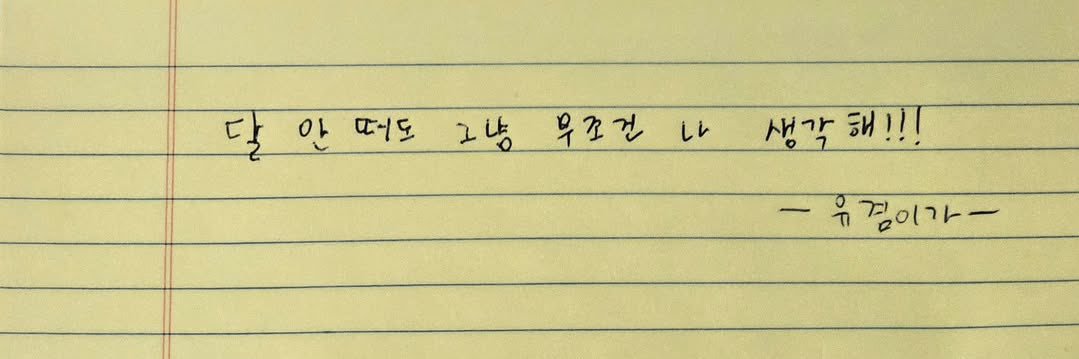 달 안 떠도 그냥 무조건 나 생각해!!!
— 유겸이가 —